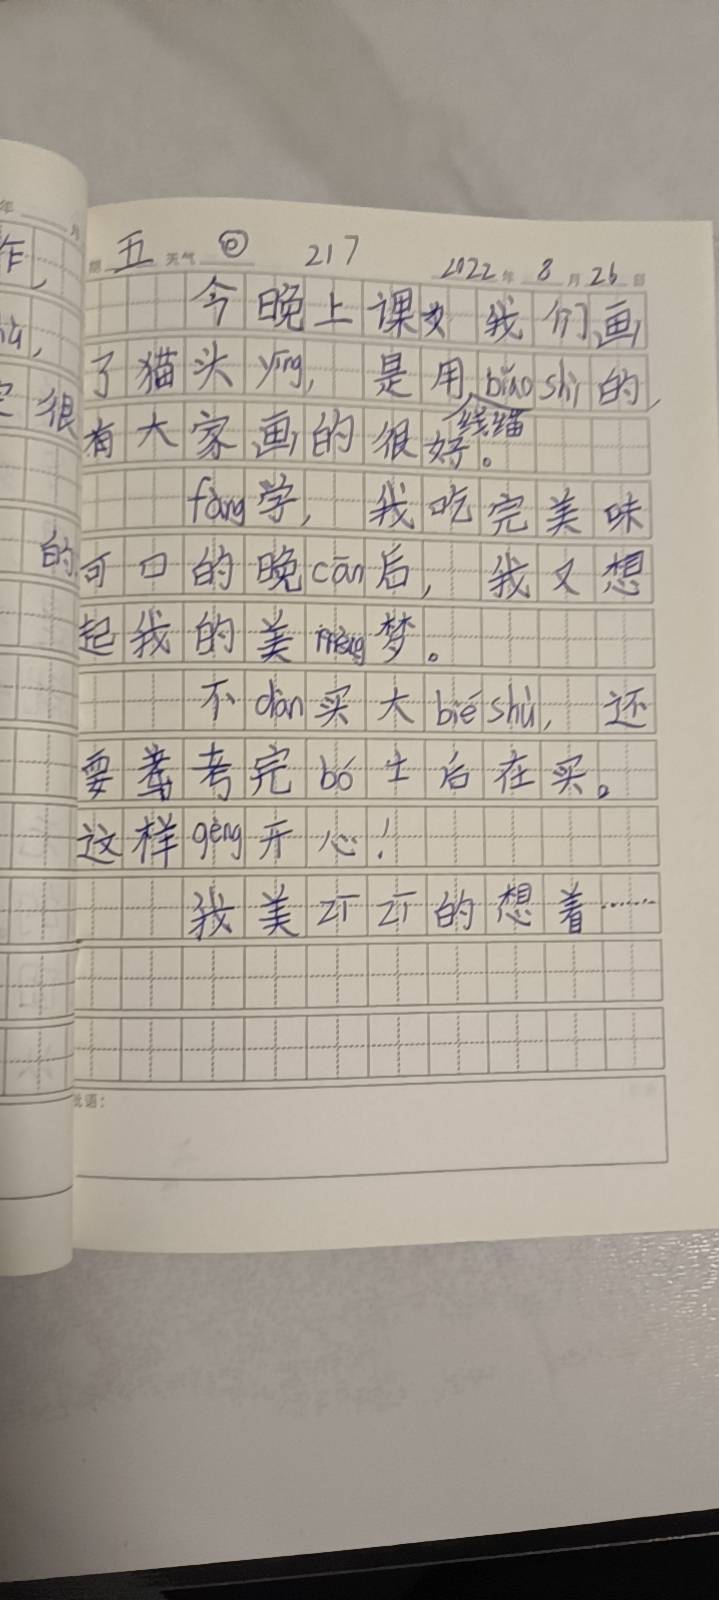 年 月
作,
很
的
期 五 天气 217 2022 年 8 月 26 日
今晚上课 我们画
了猫头yīng, 是用biāo shì的,
线描
有大家画的很好。
fàng学, 我吃完美味
可口的晚cān后, 我又想
起我的美梦。
不dàn买大bié shù, 还
要 考完bó士后在买。
这样gèng开心!
我美zī zī的想着……
批语: